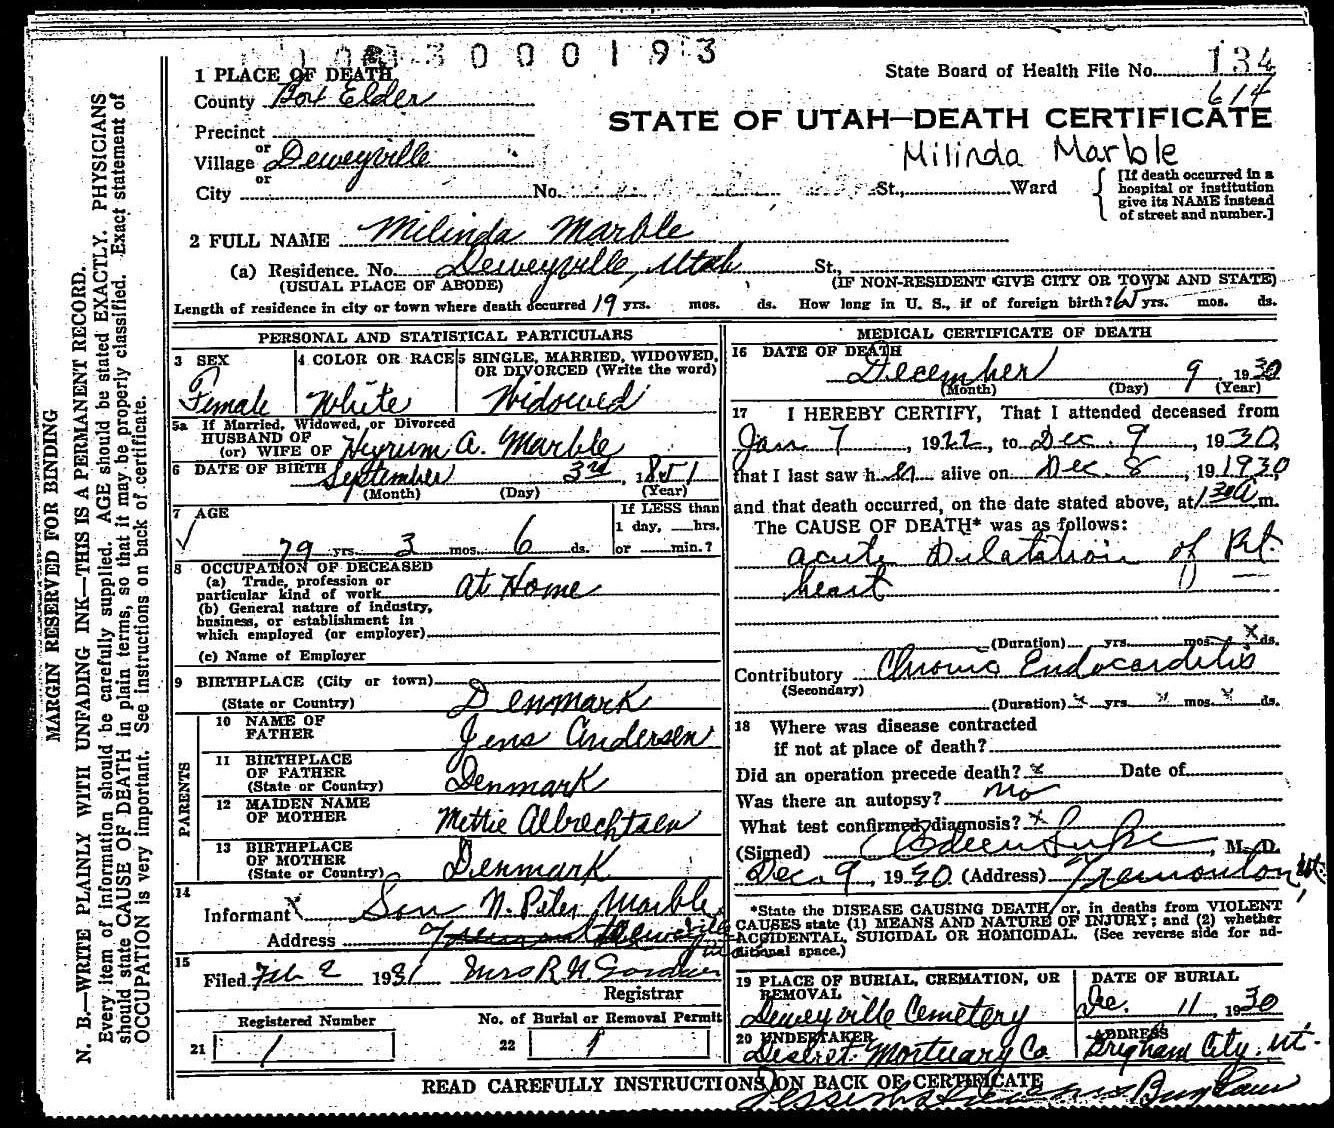 3000193
1 PLACE OF DEATH
State Board of Health File No. 134
614
County Box Elder
STATE OF UTAH—DEATH CERTIFICATE
Precinct
or
Milinda Marble
Village Deweyville
or
City No. St., Ward
[If death occurred in a
hospital or institution
give its NAME instead
of street and number.]
2 FULL NAME Milinda Marble
(a) Residence. No. Deweyville, Utah St.,
(USUAL PLACE OF ABODE) (IF NON-RESIDENT GIVE CITY OR TOWN AND STATE)
Length of residence in city or town where death occurred 19 yrs. mos. ds. How long in U. S., if of foreign birth? 65 yrs. mos. ds.
PERSONAL AND STATISTICAL PARTICULARS
3 SEX
Female
4 COLOR OR RACE
White
5 SINGLE, MARRIED, WIDOWED,
OR DIVORCED (Write the word)
Widowed
5a If Married, Widowed, or Divorced
HUSBAND OF
(or) WIFE OF Hyrum A. Marble
6 DATE OF BIRTH September 3rd, 1851
(Month) (Day) (Year)
7 AGE
79 yrs. 3 mos. 6 ds.
If LESS than
1 day, hrs.
or min.?
8 OCCUPATION OF DECEASED
(a) Trade, profession or
particular kind of work At Home
(b) General nature of industry,
business, or establishment in
which employed (or employer)
(c) Name of Employer
9 BIRTHPLACE (City or town)
(State or Country) Denmark
PARENTS
10 NAME OF
FATHER Jens Andersen
11 BIRTHPLACE
OF FATHER
(State or Country) Denmark
12 MAIDEN NAME
OF MOTHER Mettie Albrechtsen
13 BIRTHPLACE
OF MOTHER
(State or Country) Denmark
14
Informant Son N. Peter Marble
Address Deweyville
15
Filed Feb 2 1931 Mrs R. N. Gardner
Registrar
Registered Number
21 1
No. of Burial or Removal Permit
22 1
MEDICAL CERTIFICATE OF DEATH
16 DATE OF DEATH
December 9 1930
(Month) (Day) (Year)
17 I HEREBY CERTIFY, That I attended deceased from
Jan 7, 1922, to Dec. 9, 1930,
that I last saw her alive on Dec 8, 19 1930,
and that death occurred, on the date stated above, at 130 a m.
The CAUSE OF DEATH* was as follows:
acute Dilatation of Rt.
heart
(Duration) yrs. mos. x ds.
Contributory Chronic Endocarditis
(Secondary)
(Duration) x yrs. " mos. x ds.
18 Where was disease contracted
if not at place of death?
Did an operation precede death? x Date of
Was there an autopsy? no
What test confirmed diagnosis? x
(Signed) , M. D.
Dec. 9, 1930 (Address) Tremonton, Ut.
*State the DISEASE CAUSING DEATH, or, in deaths from VIOLENT
CAUSES state (1) MEANS AND NATURE OF INJURY; and (2) whether
ACCIDENTAL, SUICIDAL OR HOMICIDAL. (See reverse side for ad-
ditional space.)
19 PLACE OF BURIAL, CREMATION, OR
REMOVAL
Deweyville Cemetery
DATE OF BURIAL
Dec. 11, 1930
20 UNDERTAKER
Deseret Mortuary Co
ADDRESS
Brigham City, Ut.
READ CAREFULLY INSTRUCTIONS ON BACK OF CERTIFICATE
MARGIN RESERVED FOR BINDING
N. B.—WRITE PLAINLY WITH UNFADING INK—THIS IS A PERMANENT RECORD.
Every item of information should be carefully supplied. AGE should be stated EXACTLY. PHYSICIANS
should state CAUSE OF DEATH in plain terms, so that it may be properly classified. Exact statement of
OCCUPATION is very important. See instructions on back of certificate.